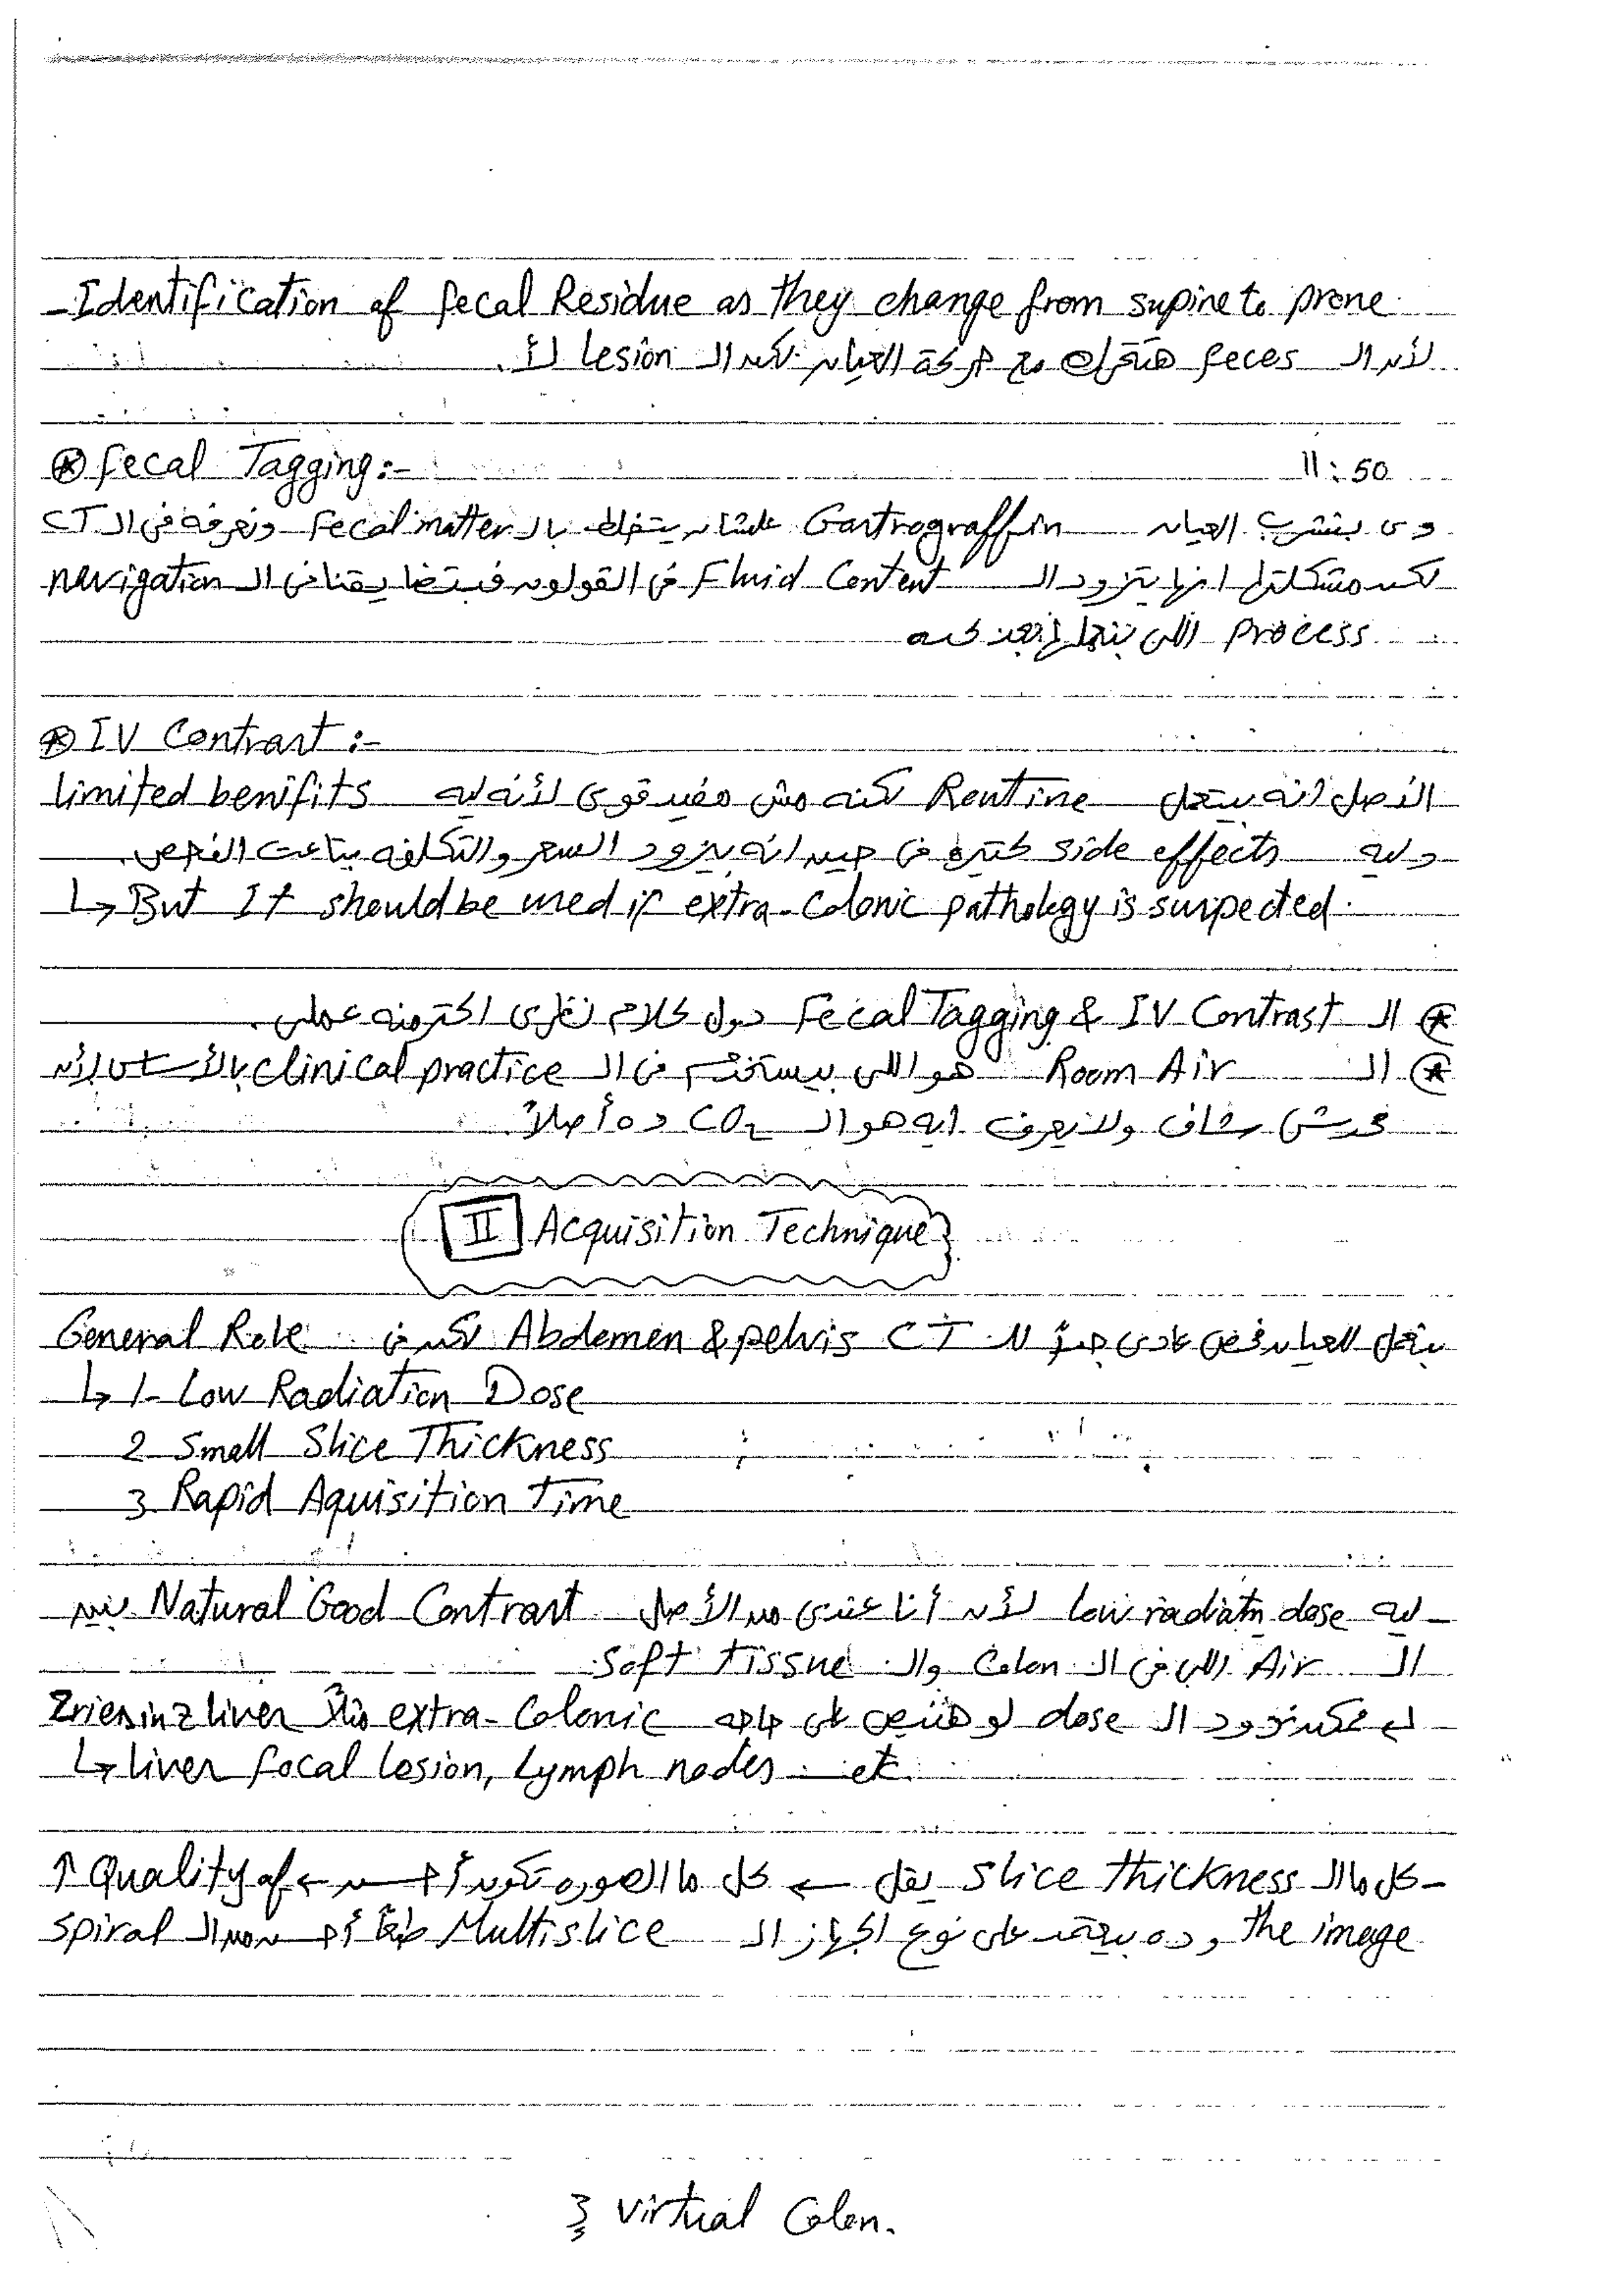 - Identification of fecal Residue as they change from supine to prone
لأن الـ feces هتتحرك مع حركة العيان لكن الـ lesion لأ.
⊛ Fecal Tagging:- 11:50
دى بنشرب العيان Gastrograffin علشان يتخلط بالـ Fecal matter ونعرفه فى الـ CT
لكن مشكلتها انها بتزود الـ Fluid Content فى القولون فبتضايقنا فى الـ navigation
process اللى بنعملها بعد كده
⊛ IV Contrast:-
الأصل انه بيتعمل Routine لكنه مش مفيد قوى لأنه ليه limited benifits
وليه side effects كتيره فى حين انه بيزود السعر والتكلفه بتاعت الفحص.
↳ But It should be used if extra-Colonic pathology is suspected.
⊛ الـ Fecal Tagging & IV Contrast دول كلام نظرى اكتر منه عملى.
⊛ الـ Room Air هو اللى بيستخدم فى الـ clinical practice بالأساس لأن
محدش شاف ولا يعرف ايه هو الـ CO₂ ده أصلاً.
II Acquisition Technique
بنعمل للعيان فحص عادى جداً للـ Abdomen & pelvis CT لكن فى General Role
↳ 1- Low Radiation Dose
2 Small Slice Thickness
3 Rapid Aquisition Time
- ليه low radiatn dose لأن أنا عندى من الأصل Natural Good Contrast بين
الـ Air اللى فى الـ Colon والـ Soft Tissue
ممكن نزود الـ dose لو هنبص على حاجه extra-Colonic مثلاً liver
↳ liver focal lesion, Lymph nodes .. etc.
- كل ما الـ Slice thickness يقل ← كل ما الصوره تكون أحسن ← ↑ Quality of
the image وده بيعتمد على نوع الجهاز الـ Multislice طبعاً أحسن من الـ spiral
3 Virtual Colon.